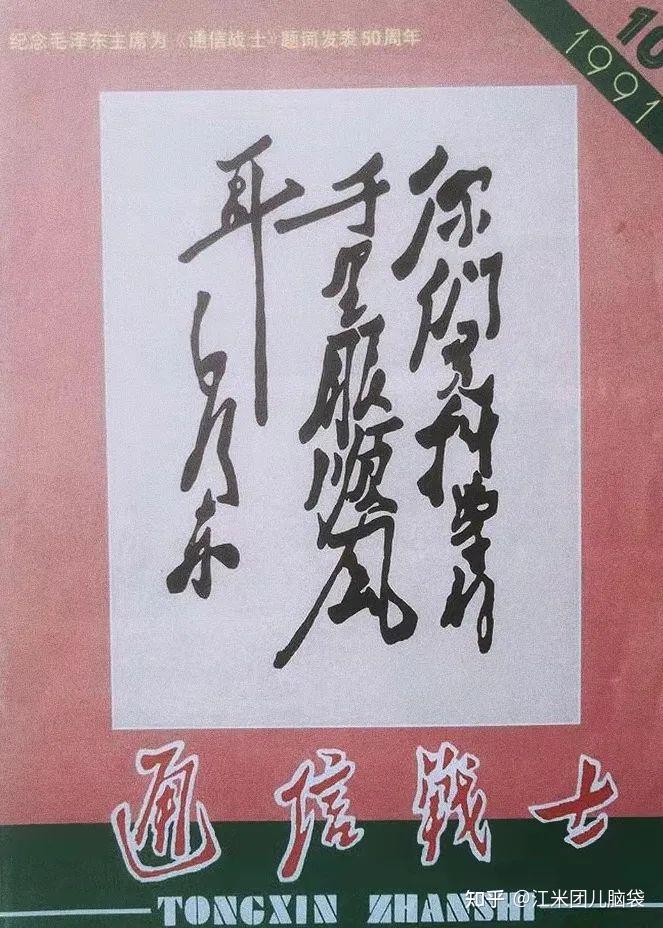 纪念毛泽东主席为《通信战士》题词发表50周年
10
1991
你们是科学的
千里眼顺风
耳 毛泽东
通信戰士
TONGXIN ZHANSHI
知乎 @江米团儿脑袋